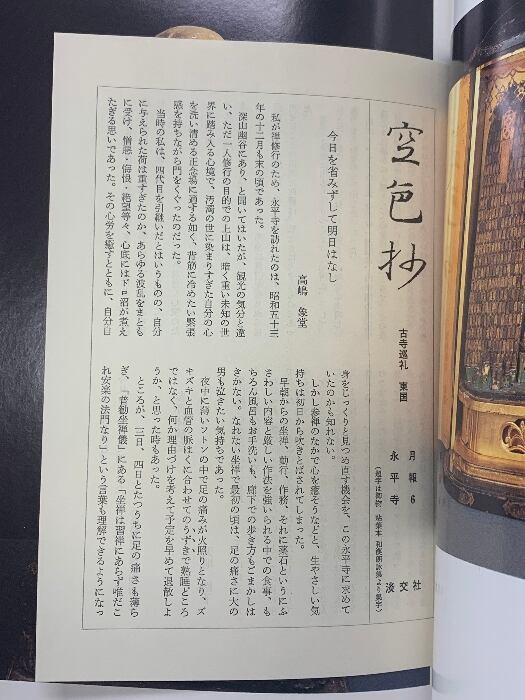 空色抄
古寺巡礼 東国
月報6
永平寺
淡交社
今日を省みずして明日はなし
高嶋 象堂
私が禅修行のため、永平寺を訪れたのは、昭和五十三
年の十二月も末の頃であった。
深山幽谷にあり、と聞いてはいたが、観光の気分と違
い、ただ一人修行の目的での上山は、暗く重い未知の世
界に踏み入る心境で、汚濁の世に染まりすぎた自分の心
を洗い清める正念場に適する如く、背筋に冷めたい緊張
感を持ちながら門をくぐったのだった。
当時の私は、四代目を引継いだとはいうものの、自分
に与えられた荷は重すぎたのか、あらゆる波乱をまとも
に受け、憎悪・侮恨・絶望等々、心底にはドロ沼が煮え
たぎる思いであった。その心労を癒すとともに、自分自
身をじっくりと見つめ直す機会を、この永平寺に求めて
いたのかも知れない。
しかし参禅のなかで心を癒そうなどと、生やさしい気
持ちは初日から吹きとばされてしまった。
早朝からの坐禅、勤行、作務、それに薬石というにふ
さわしい内容と厳しい作法を強いられる中での食事、も
ちろん風呂もお手洗いも、廊下での歩き方もごまかしは
きかない。なれない坐禅で最初の頃は、足の痛さに大の
男も泣きたい気持ちであった。
夜中に薄いフトンの中で足の痛みが火照りとなり、ズ
キズキと血管の脈はくに合わせてのうずきで熟睡どころ
ではなく、何か理由づけを考えて予定を早めて退散しよ
うか、と思った時もあった。
ところが、三日、四日とたつうちに足の痛さも薄ら
ぎ、「普勧坐禅儀」にある「坐禅は習禅にあらず唯だこ
れ安楽の法門なり」という言葉も理解できるようになっ